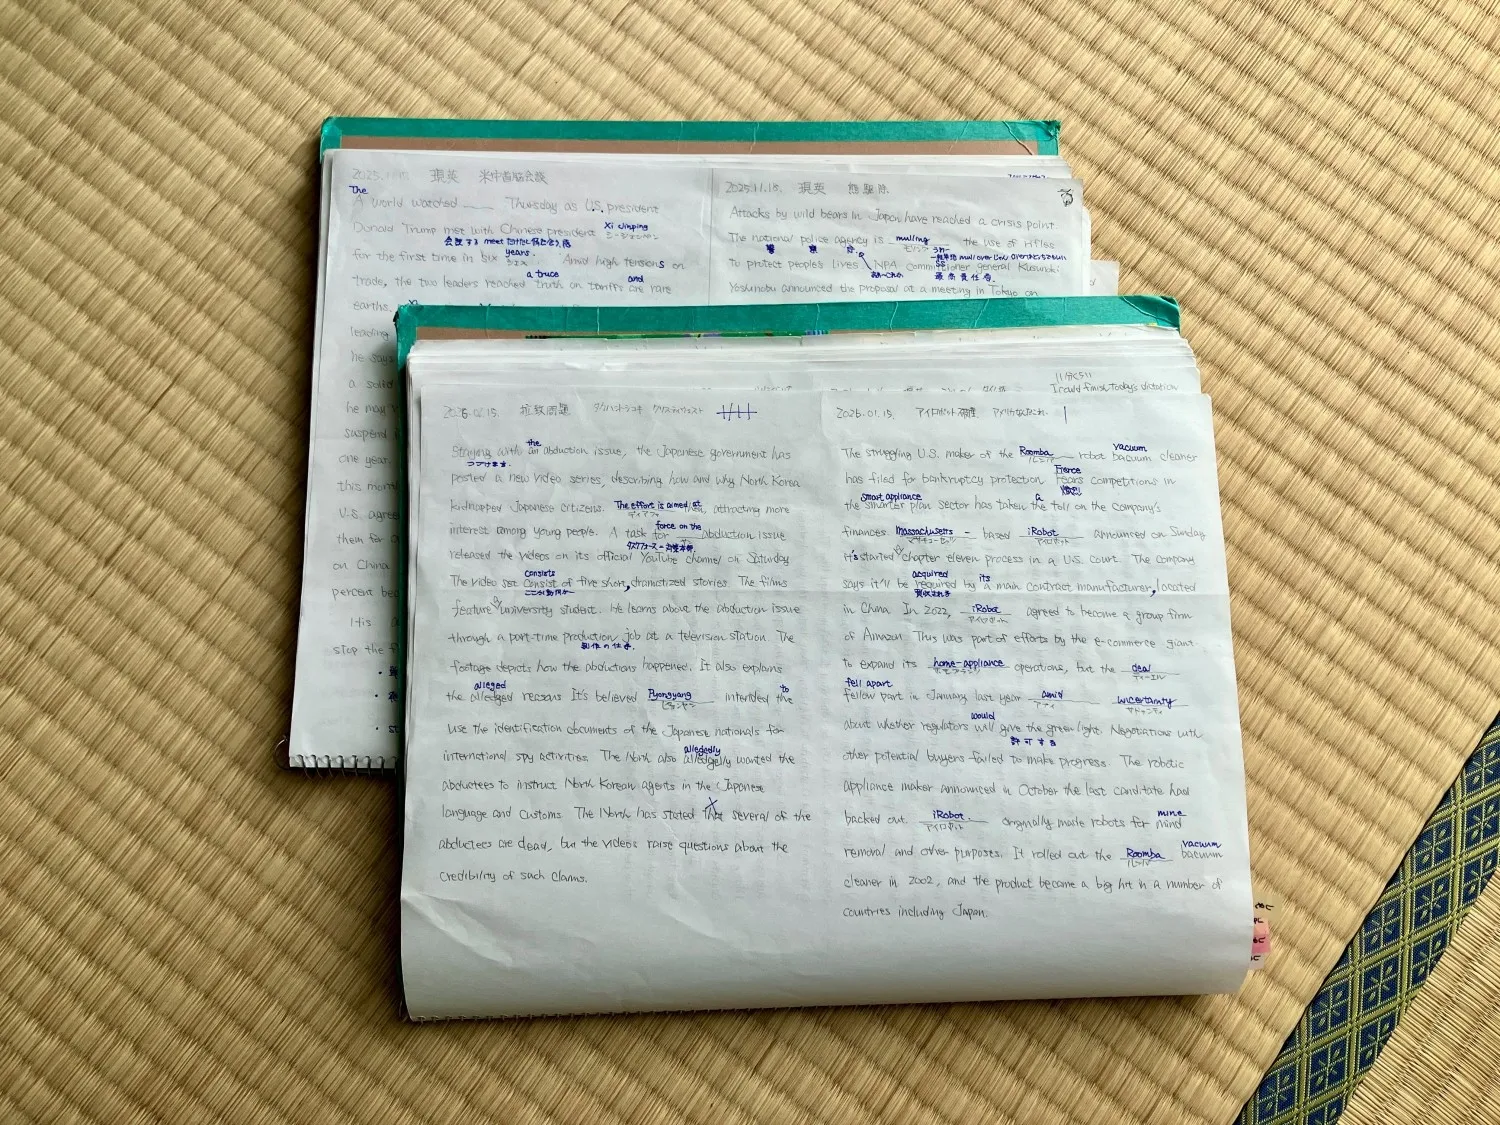 2025.11.
現英 米中首脳会談
The
A world watched Thursday as U.S. president
Donald Trump met with Chinese president Xi Jinping
for the first time in six years. Amid high tensions on
a truce and
trade, the two leaders reached truth on tariffs are rare
earths.
leading
he says
a solid
he may
suspend
one year
this mon
U.S. agree
them for
on China
percent be
His
stop the f
2025.11.18. 現英 熊駆除
Attacks by wild bears in Japan have reached a crisis point.
The national police agency is mulling the use of rifles
警察庁
to protect people's lives. NPA commissioner general Kusunoki
最高責任者
Yoshinobu announced the proposal at a meeting in Tokyo on
I could finish today's dictation
2026.02.15. 拉致問題
the
Staying with an abduction issue, the Japanese government has
つづけます.
posted a new video series, describing how and why North Korea
kidnapped Japanese citizens. The effort is aimed at attracting more
force on the
interest among young people. A task for abduction issue
released the videos on its official YouTube channel on Saturday
consists
The video set consist of five short, dramatized stories. The films
feature a university student. He learns about the abduction issue
through a part-time production job at a television station. The
制作の仕事.
footage depicts how the abductions happened. It also explains
alleged
the alledged reasons It's believed Pyongyang intended the to
use the identification documents of the Japanese nationals for
allegedly
international spy activities. The North also alledgelly wanted the
abductees to instruct North Korean agents in the Japanese
language and customs. The North has stated that several of the
abductees are dead, but the videos raise questions about the
credibility of such claims.
2026.01.15.
vacuum
The struggling U.S. maker of the Roomba robot bacuum cleaner
Fierce
has filed for bankruptcy protection fears competitions in
smart appliance a
the smarter plan sector has taken the toll on the company's
finances Massachusetts - based iRobot announced on Sunday
アイロボット
it's started chapter eleven process in a U.S. court. The company
acquired its
says it'll be required by a main contract manufacturer, located
買収される
in China In 2022, iRobot agreed to become a group firm
アイロボット
of Amazon This was part of efforts by the e-commerce giant
to expand its home-appliance operations, but the deal
fell apart
fellow part in January last year amid uncertainty
would
about whether regulators will give the green light. Negotiations with
許可する
other potential buyers failed to make progress. The robotic
appliance maker announced in October the last candidate had
backed out iRobot. originally made robots for mind mine
アイロボット
vacuum
removal and other purposes. It rolled out the Roomba bacuum
cleaner in 2002, and the product became a big hit in a number of
countries including Japan.